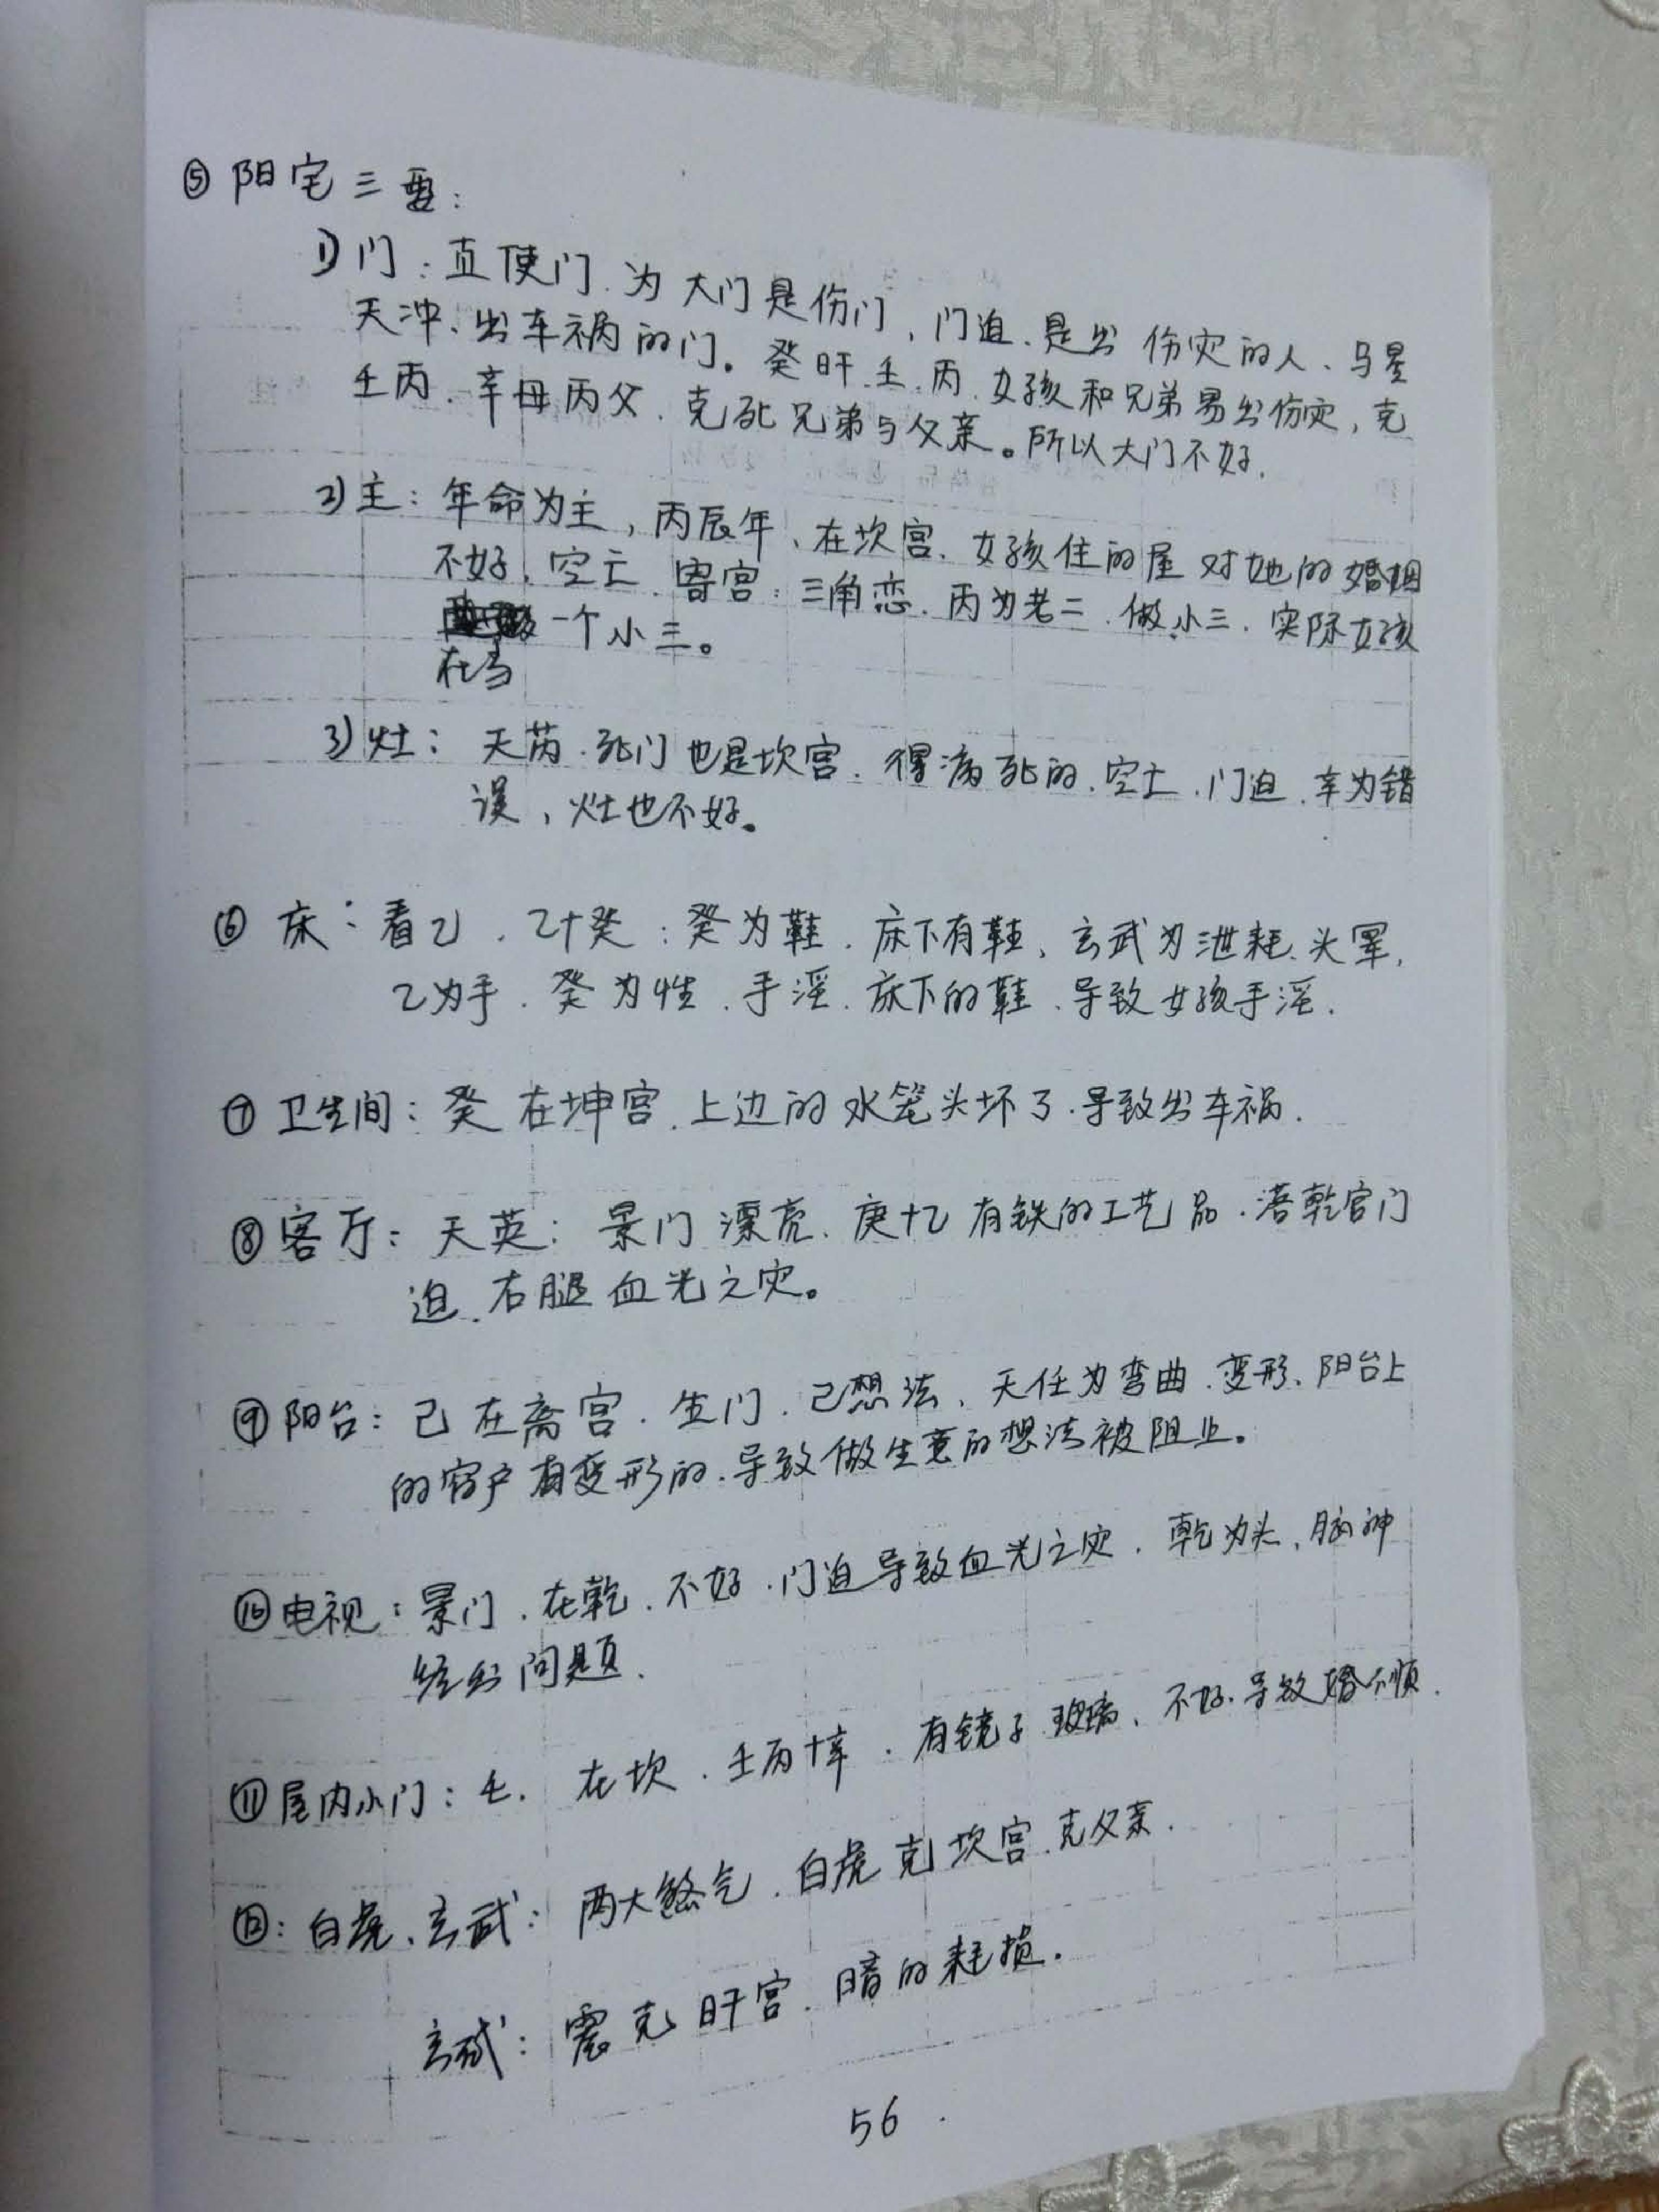 ⑤ 阳宅三要：
1) 门：直使门.为大门是伤门，门迫.是出伤灾的人、马星
天冲、出车祸的门。癸时干.壬.丙.女孩和兄弟易出伤灾，克
壬丙.辛母丙父.克死兄弟与父亲。所以大门不好.
2) 主：年命为主，丙辰年、在坎宫.女孩住的屋对她的婚姻
不好.空亡.寄宫：三角恋.丙为老二.做小三.实际女孩
一个小三。
在当
3) 灶：天芮.死门也是坎宫.得病死的.空亡.门迫.辛为错
误，灶也不好。
⑥ 床：看乙.乙+癸：癸为鞋.床下有鞋、玄武为泄耗.头晕,
乙为手.癸为性.手淫.床下的鞋.导致女孩手淫.
⑦ 卫生间：癸在坤宫.上边的水笼头坏了.导致出车祸.
⑧ 客厅：天英：景门漂亮.庚+乙有铁的工艺品.落乾宫门
迫.右腿血光之灾。
⑨ 阳台：己在离宫.生门.己想法、天任为弯曲.变形、阳台上
的窗户有变形的.导致做生意的想法被阻止。
⑩ 电视：景门.在乾.不好.门迫导致血光之灾.乾为头、脑神
经出问题.
⑪ 屋内小门：壬.在坎.壬丙+辛.有镜子玻璃、不好.导致婚不顺.
⑫：白虎、玄武：两大煞气.白虎克坎宫.克父亲.
玄武：震克时干宫.暗的耗损.
56.